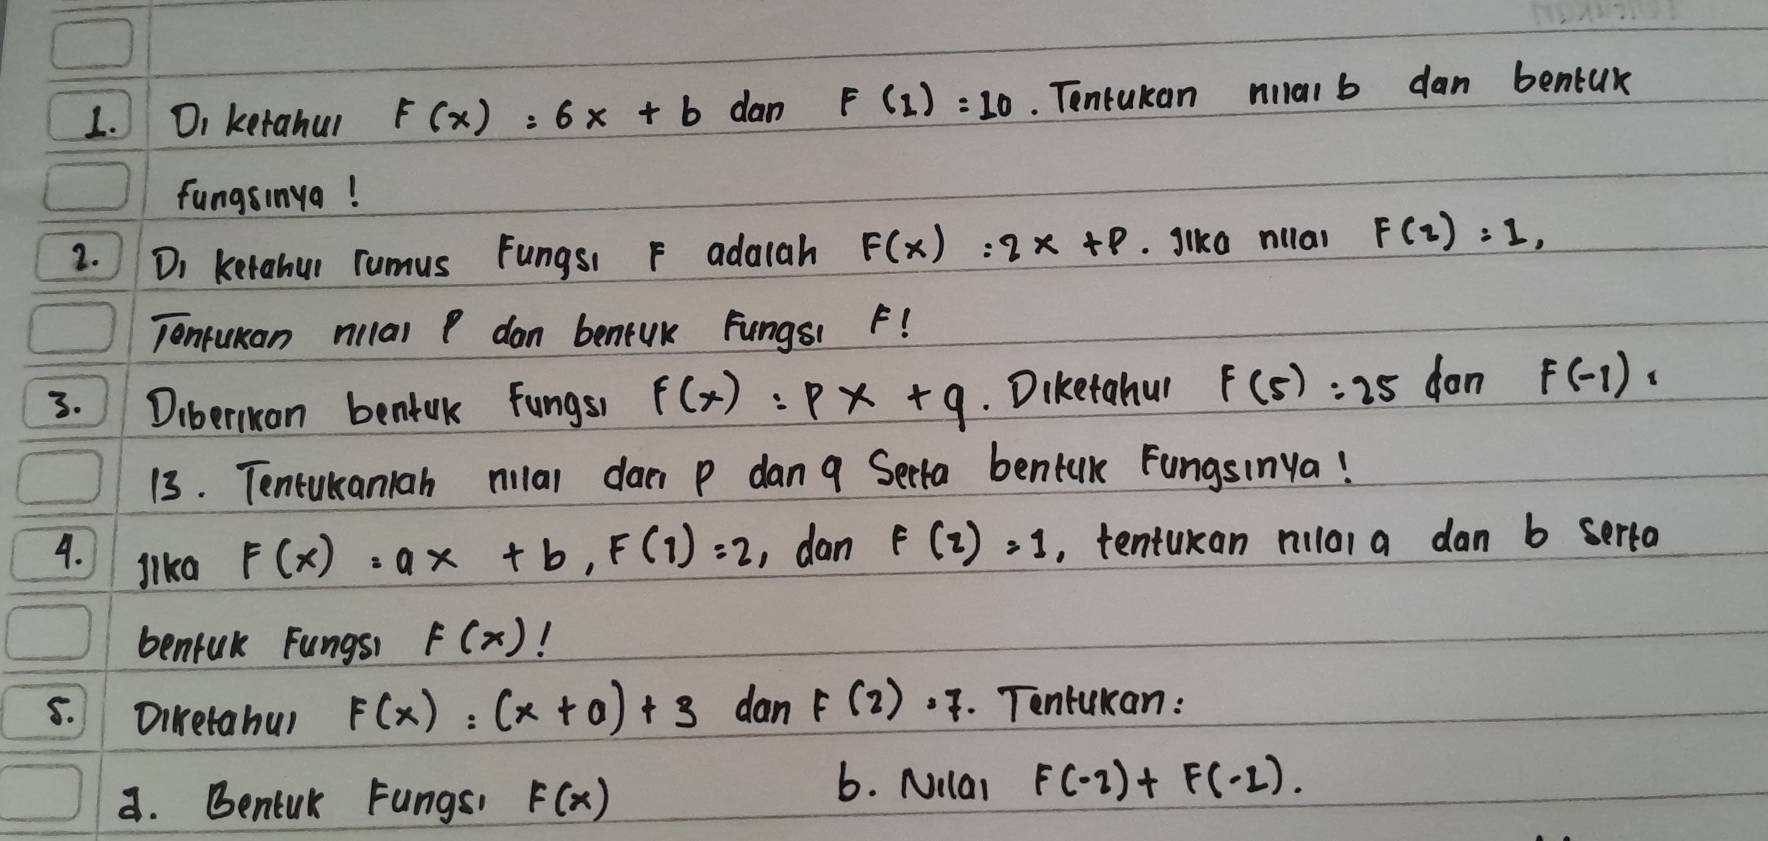 1. Di ketahui F(x) = 6x + b dan F(1) = 10. Tentukan nilai b dan bentuk
fungsinya!
2. Di ketahui rumus Fungsi F adalah F(x) = 2x + P. Jika nilai F(2) = 1,
Tentukan nilai P dan bentuk Fungsi F!
3. Diberikan bentuk Fungsi F(x) = px + q. Diketahui F(5) = 25 dan F(-1) =
13. Tentukanlah nilai dari p dan q Serta bentuk Fungsinya!
4. Jika F(x) = ax + b, F(1) = 2, dan F(2) = 1, tentukan nilai a dan b serta
bentuk Fungsi F(x)!
5. Diketahui F(x) = (x + a) + 3 dan F(2) = 7. Tentukan:
a. Bentuk Fungsi F(x) b. Nilai F(-2) + F(-1).